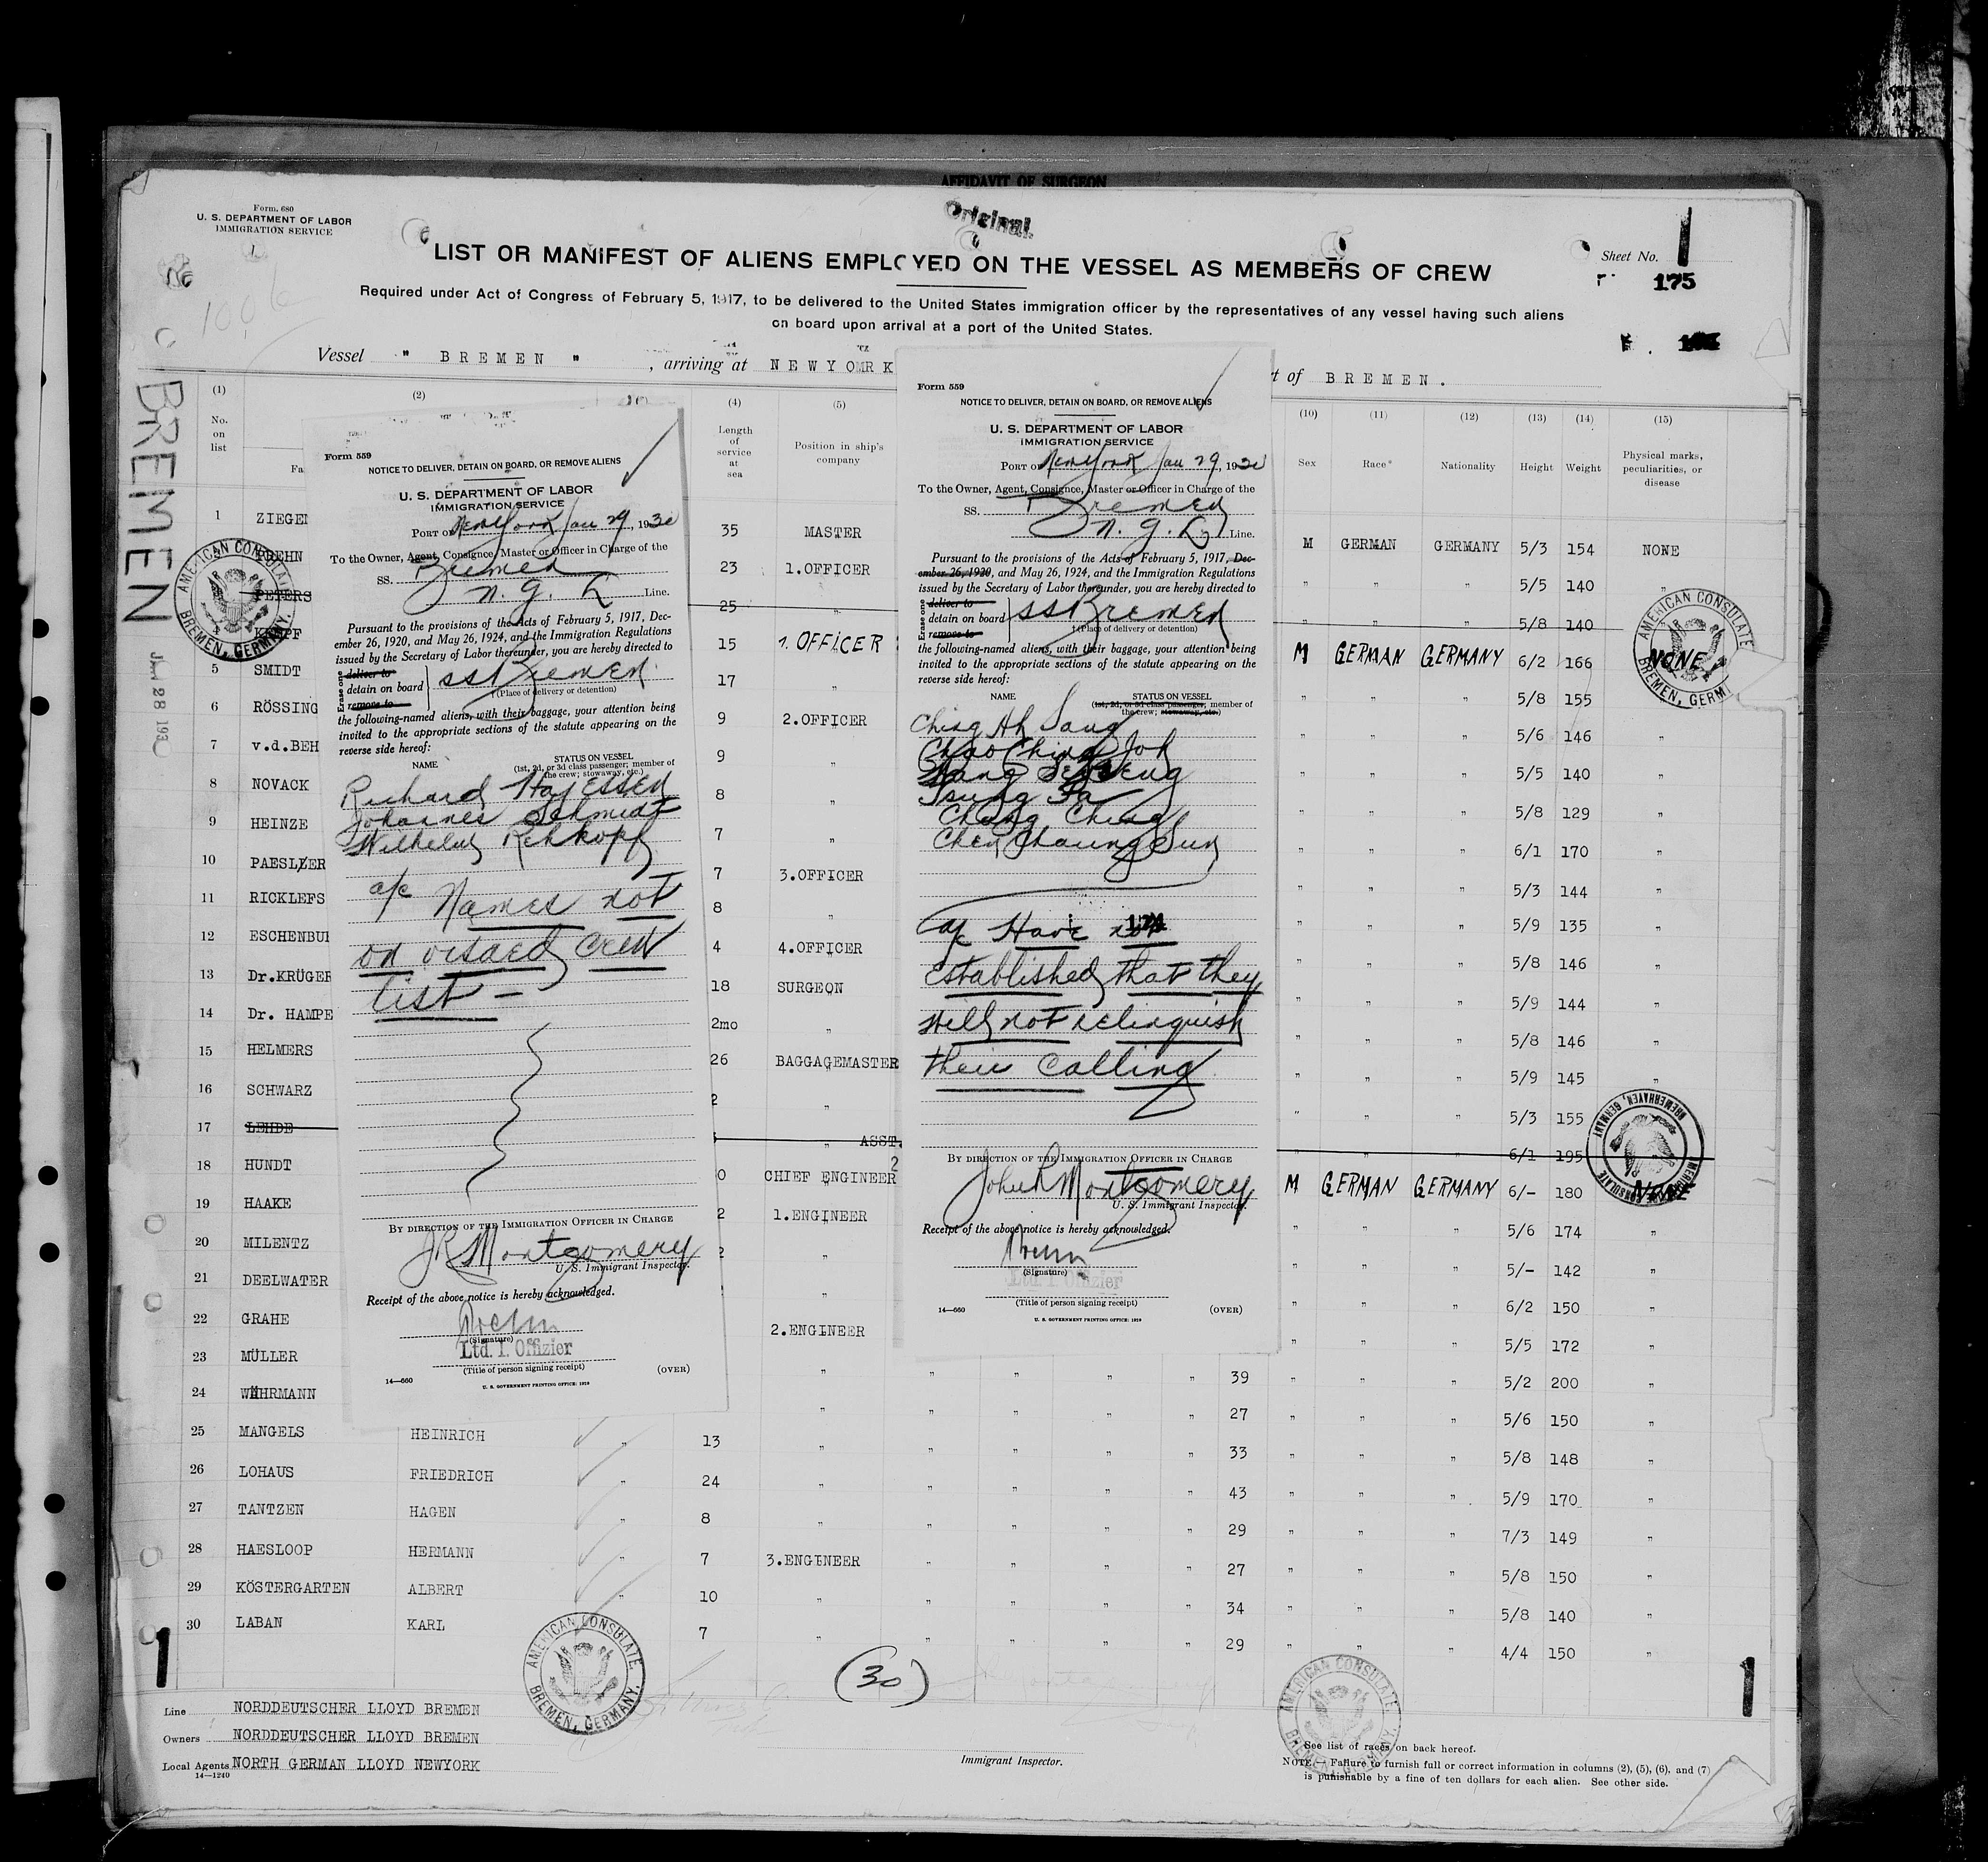 AFFIDAVIT OF SURGEON
Original.
Form. 680
U. S. DEPARTMENT OF LABOR
IMMIGRATION SERVICE
Sheet No. 1
175
LIST OR MANIFEST OF ALIENS EMPLOYED ON THE VESSEL AS MEMBERS OF CREW
Required under Act of Congress of February 5, 1917, to be delivered to the United States immigration officer by the representatives of any vessel having such aliens
on board upon arrival at a port of the United States.
Vessel " BREMEN " , arriving at NEWYORK
t of BREMEN.
BREMEN
Jan 28 193
(1) (2) (4) (5) (10) (11) (12) (13) (14) (15)
No. on list
Fa
Length of service at sea
Position in ship's company
Sex Race* Nationality Height Weight Physical marks, peculiarities, or disease
1 ZIEGEN 35 MASTER M GERMAN GERMANY 5/3 154 NONE
BREHN 23 1.OFFICER " " " 5/5 140 "
PETERS 25 " " " " 5/8 140
KAMPF 15 1. OFFICER M GERMAN GERMANY 6/2 166 NONE
5 SMIDT 17 " " " " 5/8 155
6 RÖSSING 9 2.OFFICER " " " 5/6 146 "
7 v.d.BEH 9 " " " " 5/5 140 "
8 NOVACK 8 " " " " 5/8 129 "
9 HEINZE 7 " " " " 6/1 170 "
10 PAESLER 7 3.OFFICER " " " 5/3 144 "
11 RICKLEFS 8 " " " " 5/9 135 "
12 ESCHENBU 4 4.OFFICER " " " 5/8 146 "
13 Dr.KRÜGER 18 SURGEON " " " 5/9 144 "
14 Dr. HAMPE 2mo " " " " 5/8 146 "
15 HELMERS 26 BAGGAGEMASTER " " " 5/9 145 "
16 SCHWARZ 2 " " " " 5/3 155
17 LEHDE " ASST. " " " 6/1 195
18 HUNDT 0 CHIEF ENGINEER M GERMAN GERMANY 6/- 180 NONE
19 HAAKE 2 1.ENGINEER " " " 5/6 174 "
20 MILENTZ 2 " " " " 5/- 142 "
21 DEELWATER " " " " 6/2 150 "
22 GRAHE 2.ENGINEER " " " 5/5 172 "
23 MÜLLER " " " " " 39 " " " 5/2 200 "
24 WÄHRMANN " " " " " 27 " " " 5/6 150 "
25 MANGELS HEINRICH " 13 " " " " " 33 " " " 5/8 148 "
26 LOHAUS FRIEDRICH " 24 " " " " " 43 " " " 5/9 170 "
27 TANTZEN HAGEN " 8 " " " " " 29 " " " 7/3 149 "
28 HAESLOOP HERMANN " 7 3.ENGINEER " " " " 27 " " " 5/8 150 "
29 KÖSTERGARTEN ALBERT " 10 " " " " " 34 " " " 5/8 140 "
30 LABAN KARL 7 " " " " " 29 " " " 4/4 150 "
1
(30)
1
Form 559
NOTICE TO DELIVER, DETAIN ON BOARD, OR REMOVE ALIENS
U. S. DEPARTMENT OF LABOR
IMMIGRATION SERVICE
PORT OF New York Jan 29, 1930
To the Owner, Agent, Consignee, Master or Officer in Charge of the
SS. Bremen
N. G. L Line.
Pursuant to the provisions of the Acts of February 5, 1917, Dec-
ember 26, 1920, and May 26, 1924, and the Immigration Regulations
issued by the Secretary of Labor thereunder, you are hereby directed to
Erase one
deliver to
detain on board SS Bremen
remove to † (Place of delivery or detention)
the following-named aliens, with their baggage, your attention being
invited to the appropriate sections of the statute appearing on the
reverse side hereof:
NAME STATUS ON VESSEL
(1st, 2d, or 3d class passenger; member of
the crew; stowaway, etc.)
Richard Hayessen
Johannes Schmidt
Wilhelm Rehkopf
a/c Names not
on visaed crew
list -
BY DIRECTION OF THE IMMIGRATION OFFICER IN CHARGE
JR Montgomery
U. S. Immigrant Inspector.
Receipt of the above notice is hereby acknowledged.
(Signature)
Ltd. 1. Offizier
(Title of person signing receipt)
14—660 (OVER)
U. S. GOVERNMENT PRINTING OFFICE: 1929
Form 559
NOTICE TO DELIVER, DETAIN ON BOARD, OR REMOVE ALIENS
U. S. DEPARTMENT OF LABOR
IMMIGRATION SERVICE
PORT OF New York Jan 29, 1930
To the Owner, Agent, Consignee, Master or Officer in Charge of the
SS. Bremen
N. G. L Line.
Pursuant to the provisions of the Acts of February 5, 1917, Dec-
ember 26, 1920, and May 26, 1924, and the Immigration Regulations
issued by the Secretary of Labor thereunder, you are hereby directed to
Erase one
deliver to
detain on board SS Bremen
remove to † (Place of delivery or detention)
the following-named aliens, with their baggage, your attention being
invited to the appropriate sections of the statute appearing on the
reverse side hereof:
NAME STATUS ON VESSEL
(1st, 2d, or 3d class passenger; member of
the crew; stowaway, etc.)
Ching Ah Sang
Chao Ching Joh
Tsung Fa
Chang Ching
Chen Chaung Sun
174
a/c Have not
established that they
will not relinquish
their calling
BY DIRECTION OF THE IMMIGRATION OFFICER IN CHARGE
John R Montgomery
U. S. Immigrant Inspector.
Receipt of the above notice is hereby acknowledged.
(Signature)
Ltd. 1. Offizier
(Title of person signing receipt)
14—660 (OVER)
U. S. GOVERNMENT PRINTING OFFICE: 1929
AMERICAN CONSULATE BREMEN, GERMANY.
AMERICAN CONSULATE BREMEN, GERM
AMERICAN CONSULATE BREMERHAVEN, GERMANY
AMERICAN CONSULATE BREMEN, GERMANY.
AMERICAN CONSULATE BREMEN, GERMANY.
Line NORDDEUTSCHER LLOYD BREMEN
Owners NORDDEUTSCHER LLOYD BREMEN
Local Agents NORTH GERMAN LLOYD NEWYORK
14—1240
Immigrant Inspector.
See list of races on back hereof.
NOTE.—Failure to furnish full or correct information in columns (2), (5), (6), and (7)
is punishable by a fine of ten dollars for each alien. See other side.